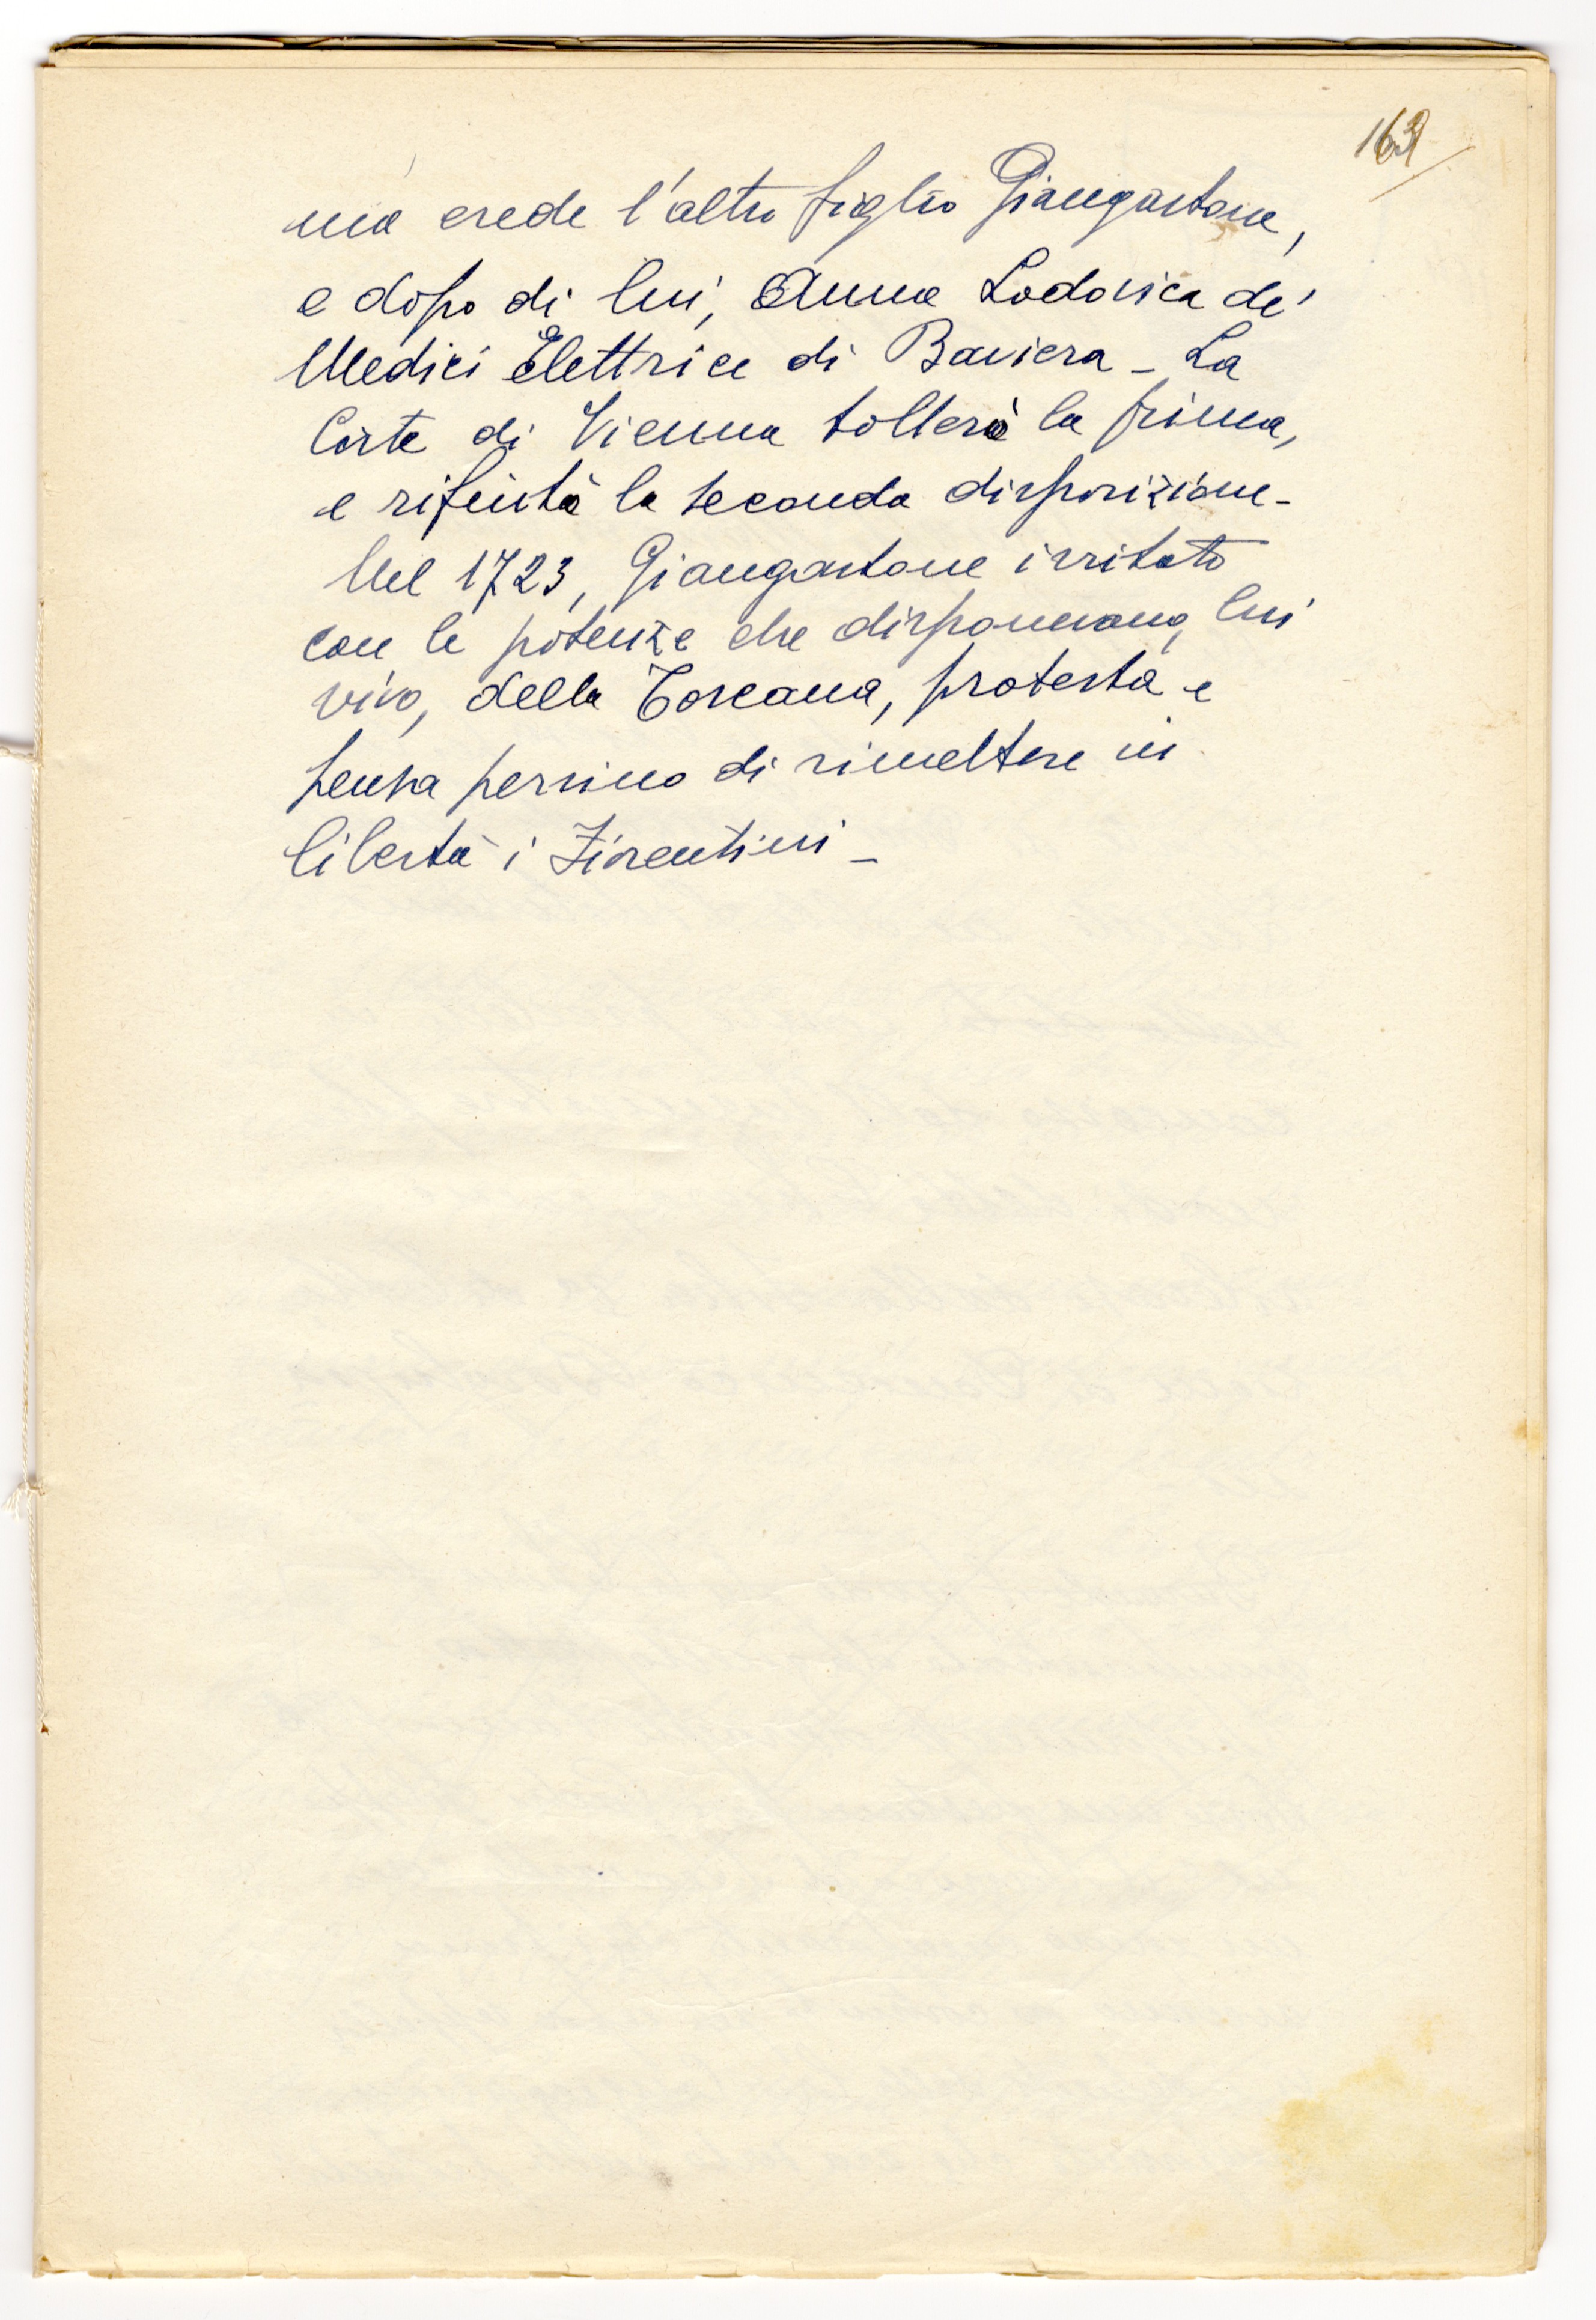 163
mò erede l'altro figlio Giangastone,
e dopo di lui, Anna Lodovica de'
Medici Elettrice di Baviera - La
Corte di Vienna tollerò la prima,
e rifiutò la seconda disposizione -
Nel 1723, Giangastone irritato
con le potenze che disponevano, lui
vivo, della Toscana, protesta e
pensa persino di rimettere in
libertà i Fiorentini -